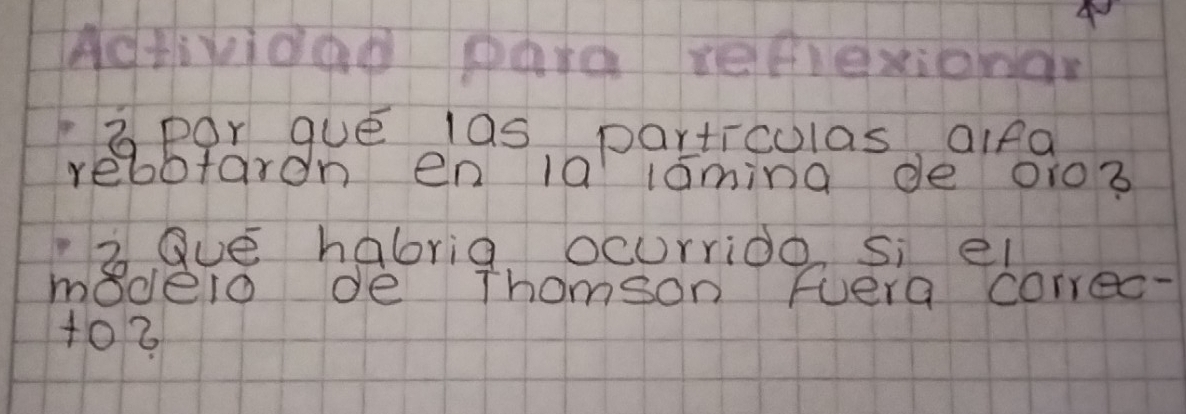 Actividad para reflexionar
• ¿Por qué las partículas alfa
rebotaron en la lámina de oro?
• ¿Qué habria ocurrido si el
modelo de Thomson fuera correc-
to?